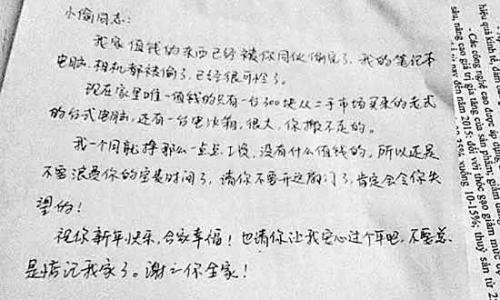 小偷同志:
我家值钱的东西已经被你同伙偷完了,我的笔记本
电脑、相机都被偷了,已经很可怜了。
现在家里唯一值钱的只有一台300块从二手市场买来的老式
的台式电脑,还有一台电冰箱,很大,你搬不走的。
我一个月就挣那么一点点工资,没有什么值钱的,所以还是
不要浪费你的宝贵时间了,请你不要开这扇门了,肯定会令你失
望的!
祝你新年快乐,合家幸福!也请你让我安心过个年吧,不要总
是惦记我家了。谢々你全家!
hiệu quả kinh tế,
- Các công nghệ cao được áp dụng
sâu, nâng cao giá trị gia tăng của sản phẩm, giảm
đến năm 2015: đối với thóc gạo giảm
xuống 10-15%; thuỷ sản từ 2